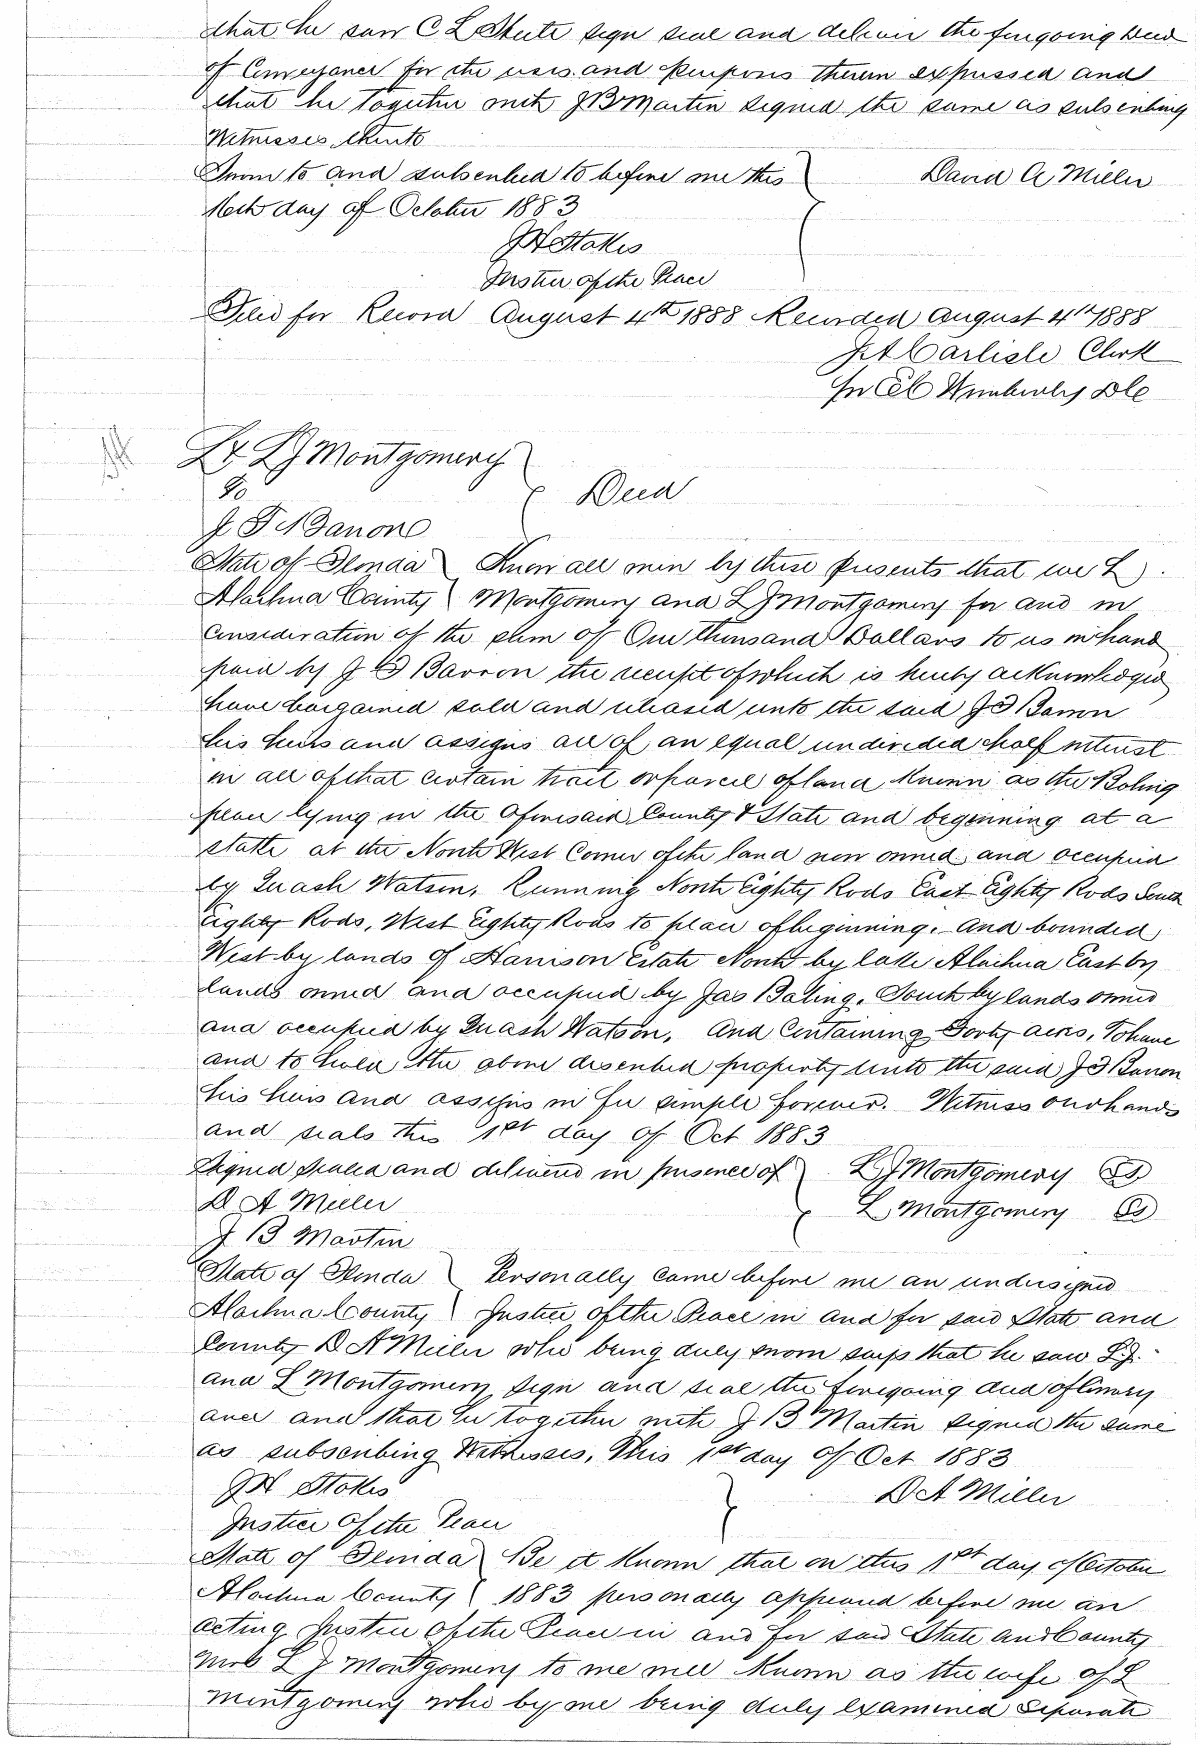 that he saw C L Shute sign seal and deliver the foregoing Deed
of Conveyance for the uses and purposes therein expressed and
that he together with J B Martin signed the same as subscribing
Witnesses thereto
Sworn to and subscribed to before me this David A Miller
16th day of October 1883
J H Stokes
Justice of the Peace
Filed for Record August 4th 1888 Recorded August 4th 1888
J A Carlisle Clerk
Wimberly DC
L & L J Montgomery
To Deed
J F Barron
State of Florida Know all men by these presents that we L
Alachua County Montgomery and L J Montgomery for and in
Consideration of the sum of One thousand Dollars to us in hand
paid by J F Barron the receipt of which is hereby acknowledged
have bargained sold and released unto the said J F Barron
his heirs and assigns all of an equal undivided half interest
in all of that certain tract or parcel of land Known as the Boling
place lying in the aforesaid County & State and beginning at a
stake at the North West Corner of the land now owned and occupied
by Quash Watson, Running North Eighty Rods East Eighty Rods South
Eighty Rods, West Eighty Rods to place of beginning. And bounded
West by lands of Harrison Estate North by lake Alachua East by
lands owned and occupied by Jas Boling, South by lands owned
and occupied by Quash Watson, And Containing Forty acres, To have
and to hold the above described property unto the said J F Barron
his heirs and assigns in fee simple forever. Witness our hands
and seals this 1st day of Oct 1883
Signed Sealed and delivered in presence of L J Montgomery
D A Miller L Montgomery
J B Martin
State of Florida Personally came before me an undersigned
Alachua County Justice of the Peace in and for said State and
County D A Miller who being duly sworn says that he saw L J.
and L Montgomery sign and seal the foregoing deed of Convey
ance and that he together with J B Martin signed the same
as subscribing Witnesses, This 1st day of Oct 1883
J H Stokes D A Miller
Justice of the Peace
State of Florida Be it Known that on this 1st day of October
Alachua County 1883 personally appeared before me an
acting Justice of the Peace in and for said State and County
Mrs L J Montgomery to me well Known as the wife of L
Montgomery who by me being duly examined separate